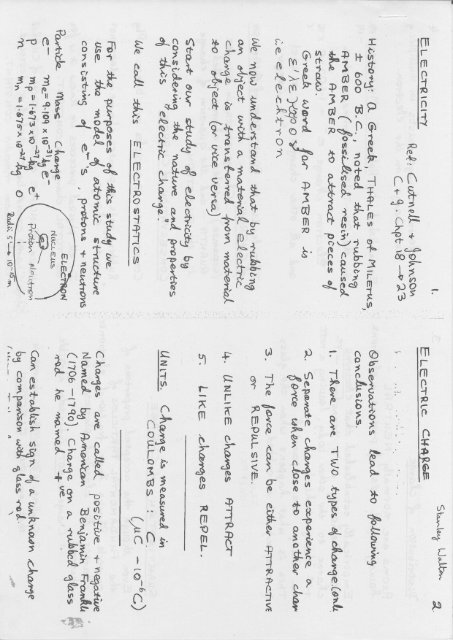 1.
ELECTRICITY Ref: Cutnell + Johnson
C + J. Chpt 18 → 23
History: A Greek THALES of MILETUS,
± 600 B.C., noted that rubbing
AMBER (fossilised resin) caused
the AMBER to attract pieces of
straw.
Greek word for AMBER is
i.e electron
We now understand that by rubbing
an object with a material electric
charge is transferred from material
to object (or vice versa)
Start our study of electricity by
considering the nature and properties
of this "electric charge"
We call this ELECTROSTATICS
For the purposes of this study we
use the model of atomic structure
consisting of e⁻s, protons + neutrons
Particle Mass Charge
e⁻ mₑ = 9.109 x 10⁻³¹ kg e⁻
p mₚ = 1.673 x 10⁻²⁷ kg e⁺
n mₙ = 1.675 x 10⁻²⁷ kg 0
ELECTRON
NUCLEUS
Proton Neutron
Stanley Walton 2
ELECTRIC CHARGE
Observations lead to following
conclusions.
1. There are TWO types of charge (only
2. Separate charges experience a
force when close to another char
3. The force can be either ATTRACTIVE
or REPULSIVE.
4. UNLIKE charges ATTRACT
5. LIKE charges REPEL.
UNITS Charge is measured in
COULOMBS : C
(μC – 10⁻⁶ C)
Charges are called positive + negative
Named by American Benjamin Franklin
(1706 – 1790) Charge on a rubbed glass
rod he named +ve
Can establish sign of a unknown charge
by comparison with glass rod